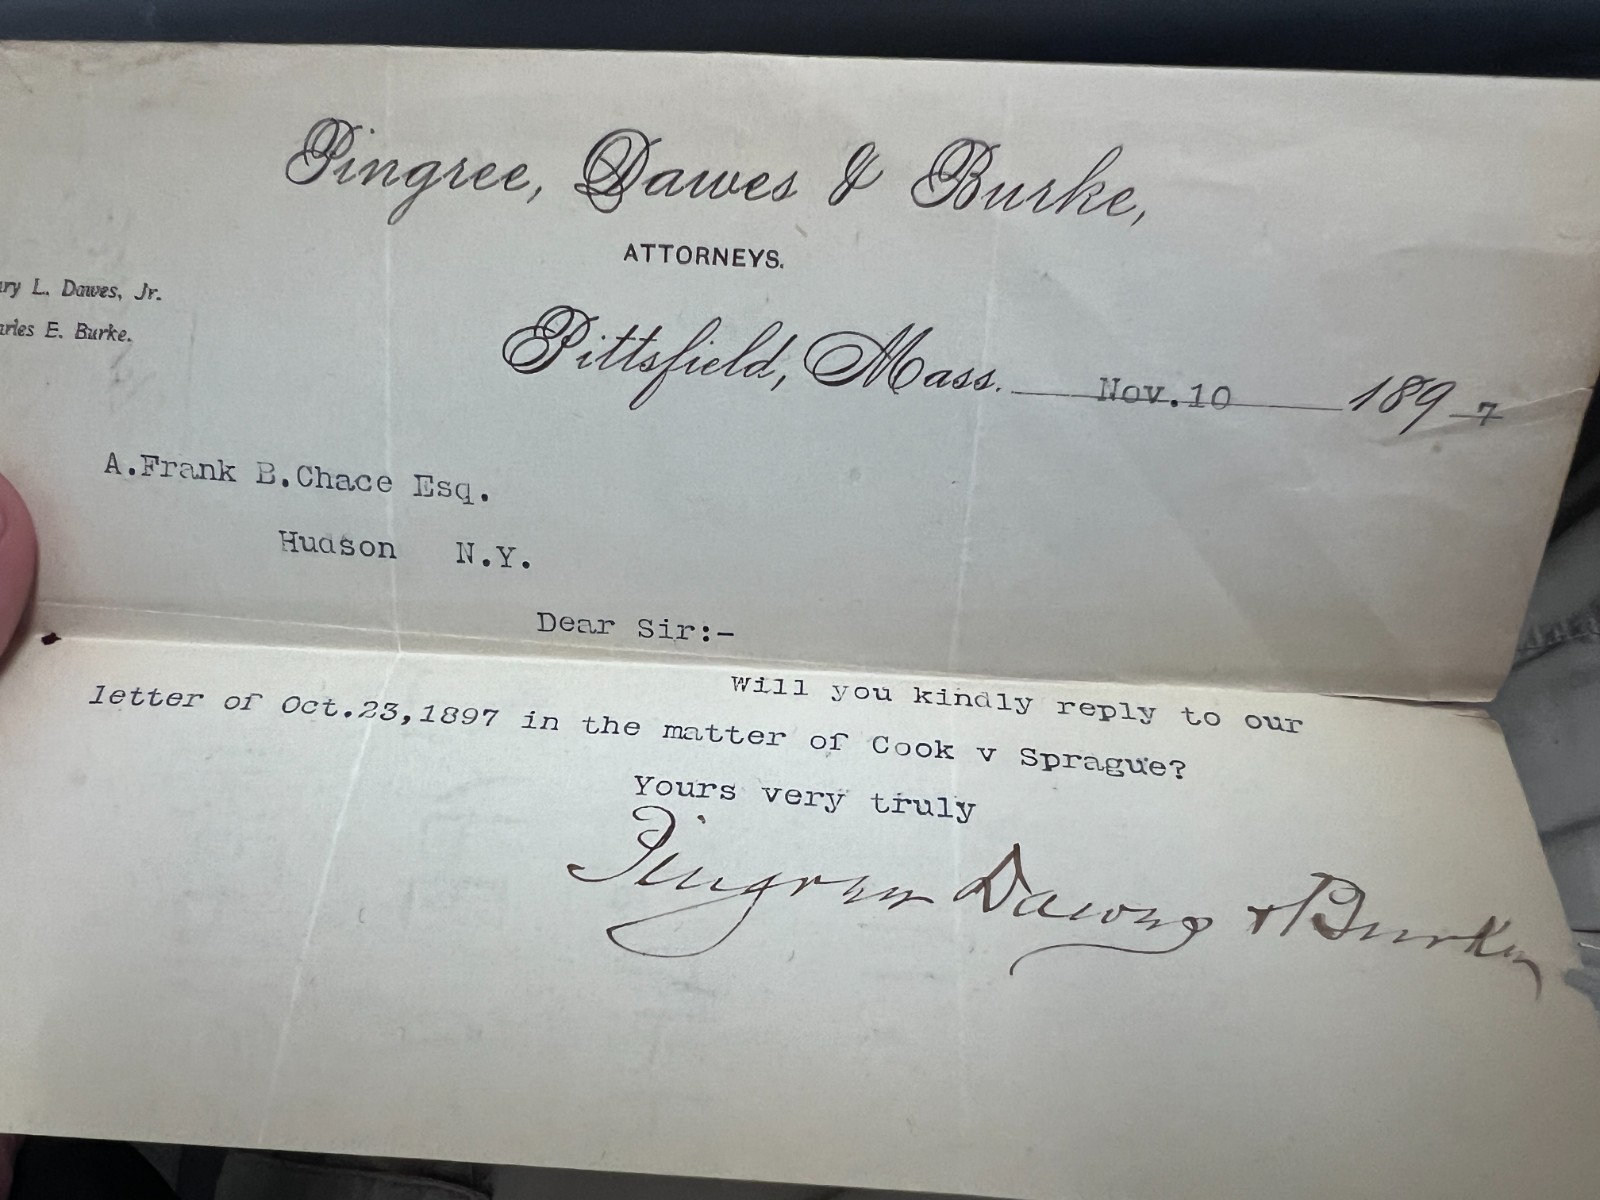 Pingree, Dawes & Burke,
ATTORNEYS.
ry L. Dawes, Jr.
arles E. Burke.
Pittsfield, Mass. Nov.10 1897
A.Frank B.Chace Esq.
Hudson N.Y.
Dear Sir:-
Will you kindly reply to our
letter of Oct.23,1897 in the matter of Cook v Sprague?
Yours very truly
Pingree Dawes & Burke